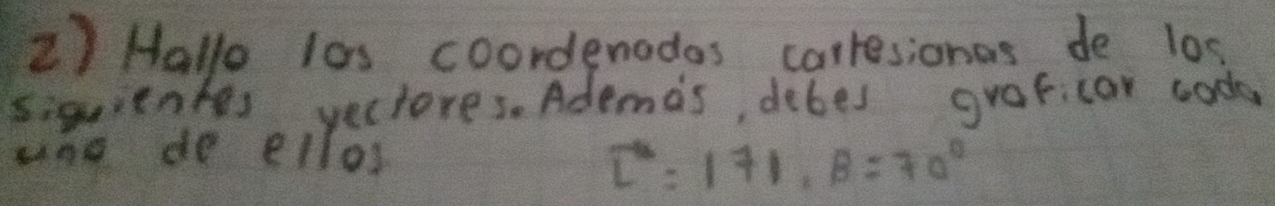 2) Hallo las coordenadas cartesianas de los
siguientes vectores. Además, debes graficar cada
uno de ellos
= |7|, B = 70°